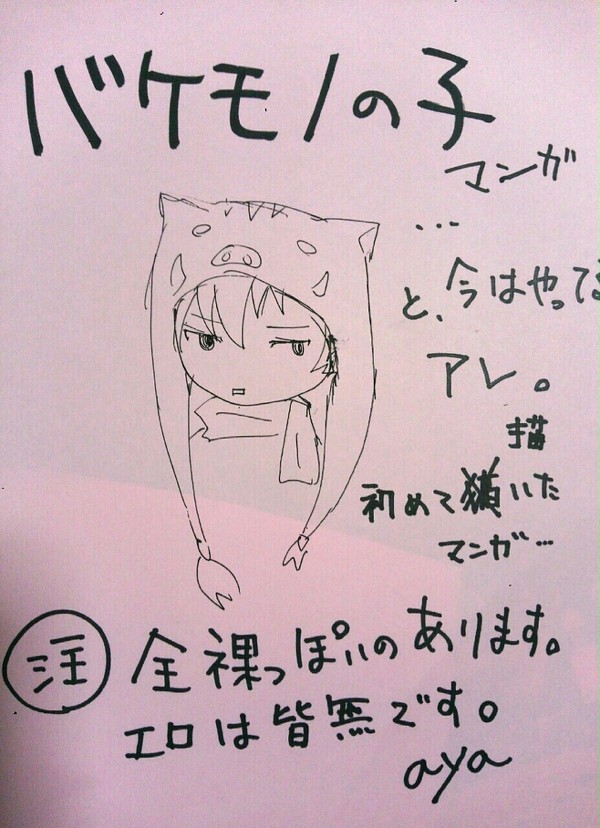 バケモノの子
マンガ
...
と、今はやってる
アレ。
描
初めて いた
マンガ…
注 全裸っぽいのあります。
エロは皆無です。
aya